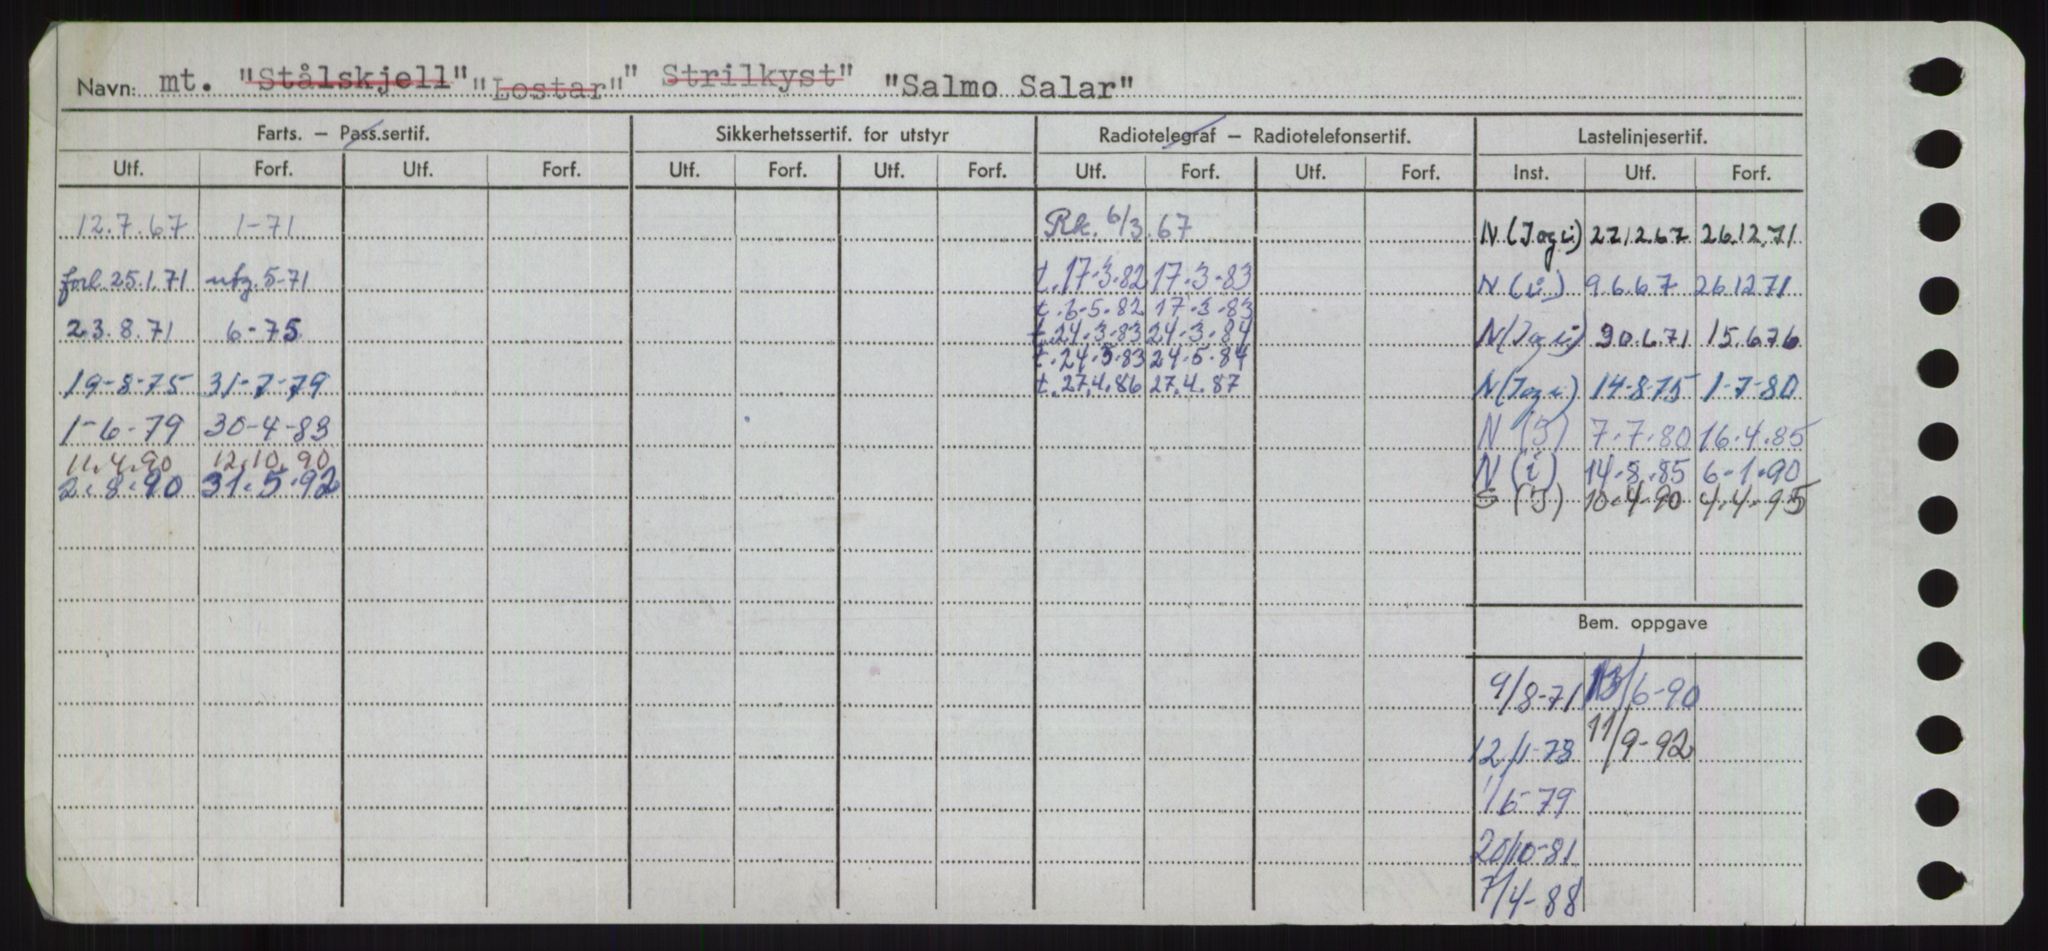 Navn: mt. "Stålskjell" "Lostar" "Strilkyst" "Salmo Salar"
Farts. – Pass.sertif. Sikkerhetssertif. for utstyr Radiotelegraf – Radiotelefonsertif. Lastelinjesertif.
Utf. Forf. Utf. Forf. Utf. Forf. Utf. Forf. Utf. Forf. Utf. Forf. Inst. Utf. Forf.
12.7.67 1-71 Rk. 6/3.67 N (I og i) 27.12.67 26.12.71
forl. 25.1.71 utg. 5-71 t. 17-3-82 17-3-83 N (i) 9.6.67 26.12.71
t. 6-5-82 17-3-83
23.8.71 6-75 t. 24-3-83 24-3-84 N (I og i) 30.6.71 15.6.76
t. 24-5-83 24-5-84
19-8-75 31-7-79 t. 27.4.86 27.4.87 N (I og i) 14-8-75 1-7-80
1-6-79 30-4-83 N (I) 7.7.80 16.4.85
11.4.90 12.10.90 N (i) 14.8.85 6-1-90
2.8.90 31.5.92 S (I) 10.4.90 4.4.95
Bem. oppgave
9/8-71 13/6-90
12/1-78 11/9-92
1/6-79
20/10-81
7/4-88